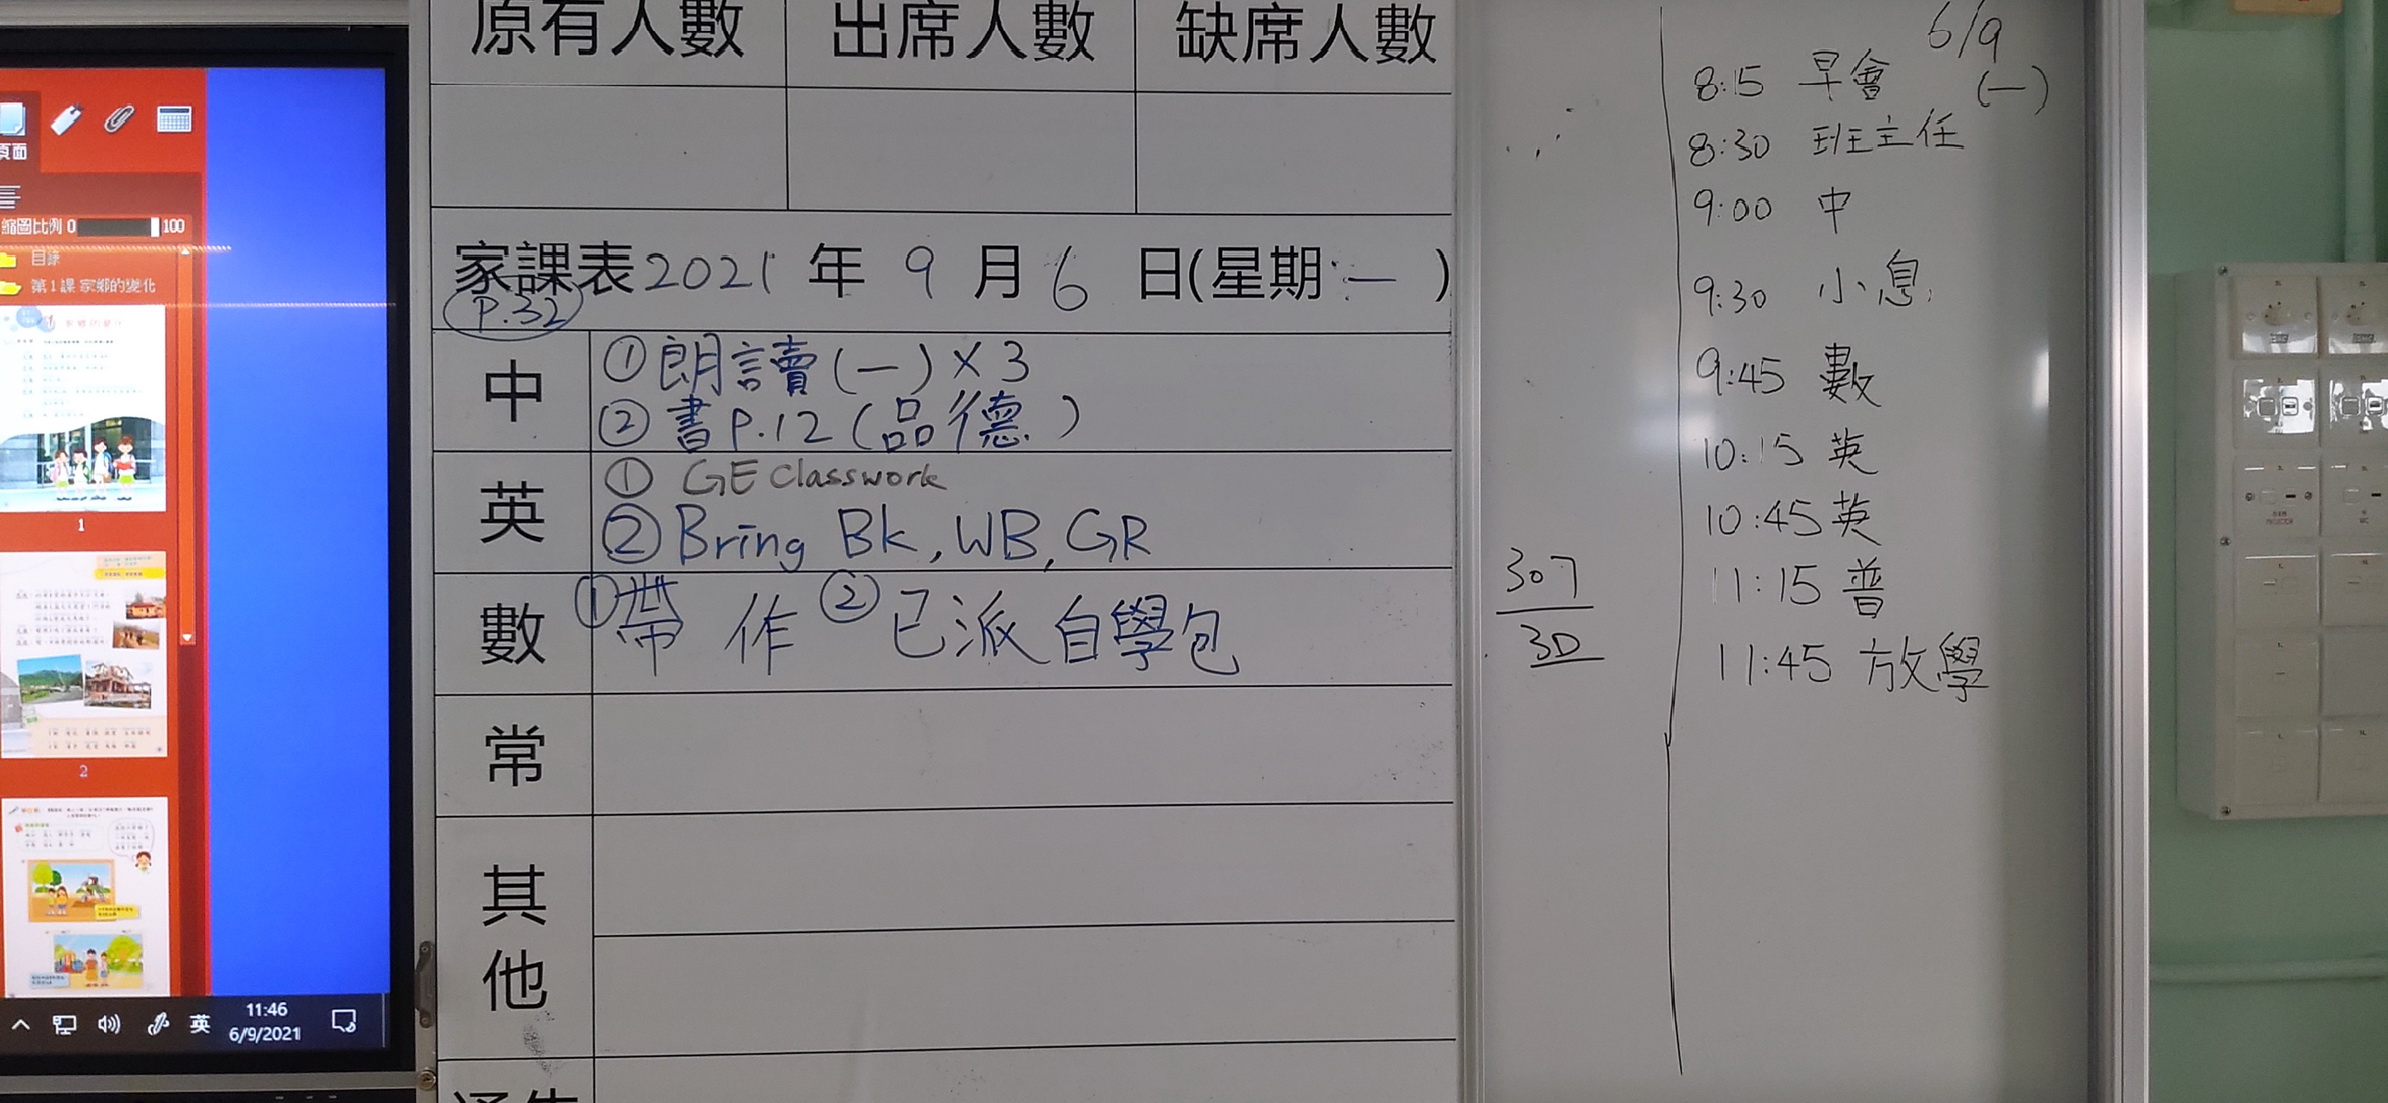 頁面
縮圖比例 0 100
目錄
第1課 家鄉的變化
1
2
英
11:46
6/9/2021
原有人數 出席人數 缺席人數
家課表2021 年 9 月 6 日(星期 一 )
P.32
中
①朗讀(一)×3
②書P.12(品德)
英
① GE Classwork
②Bring Bk, WB, GR
數
①帶 作 ②已派自學包
常
其他
307
30
6/9
(一)
8:15 早會
8:30 班主任
9:00 中
9:30 小息
9:45 數
10:15 英
10:45 英
11:15 普
11:45 放學